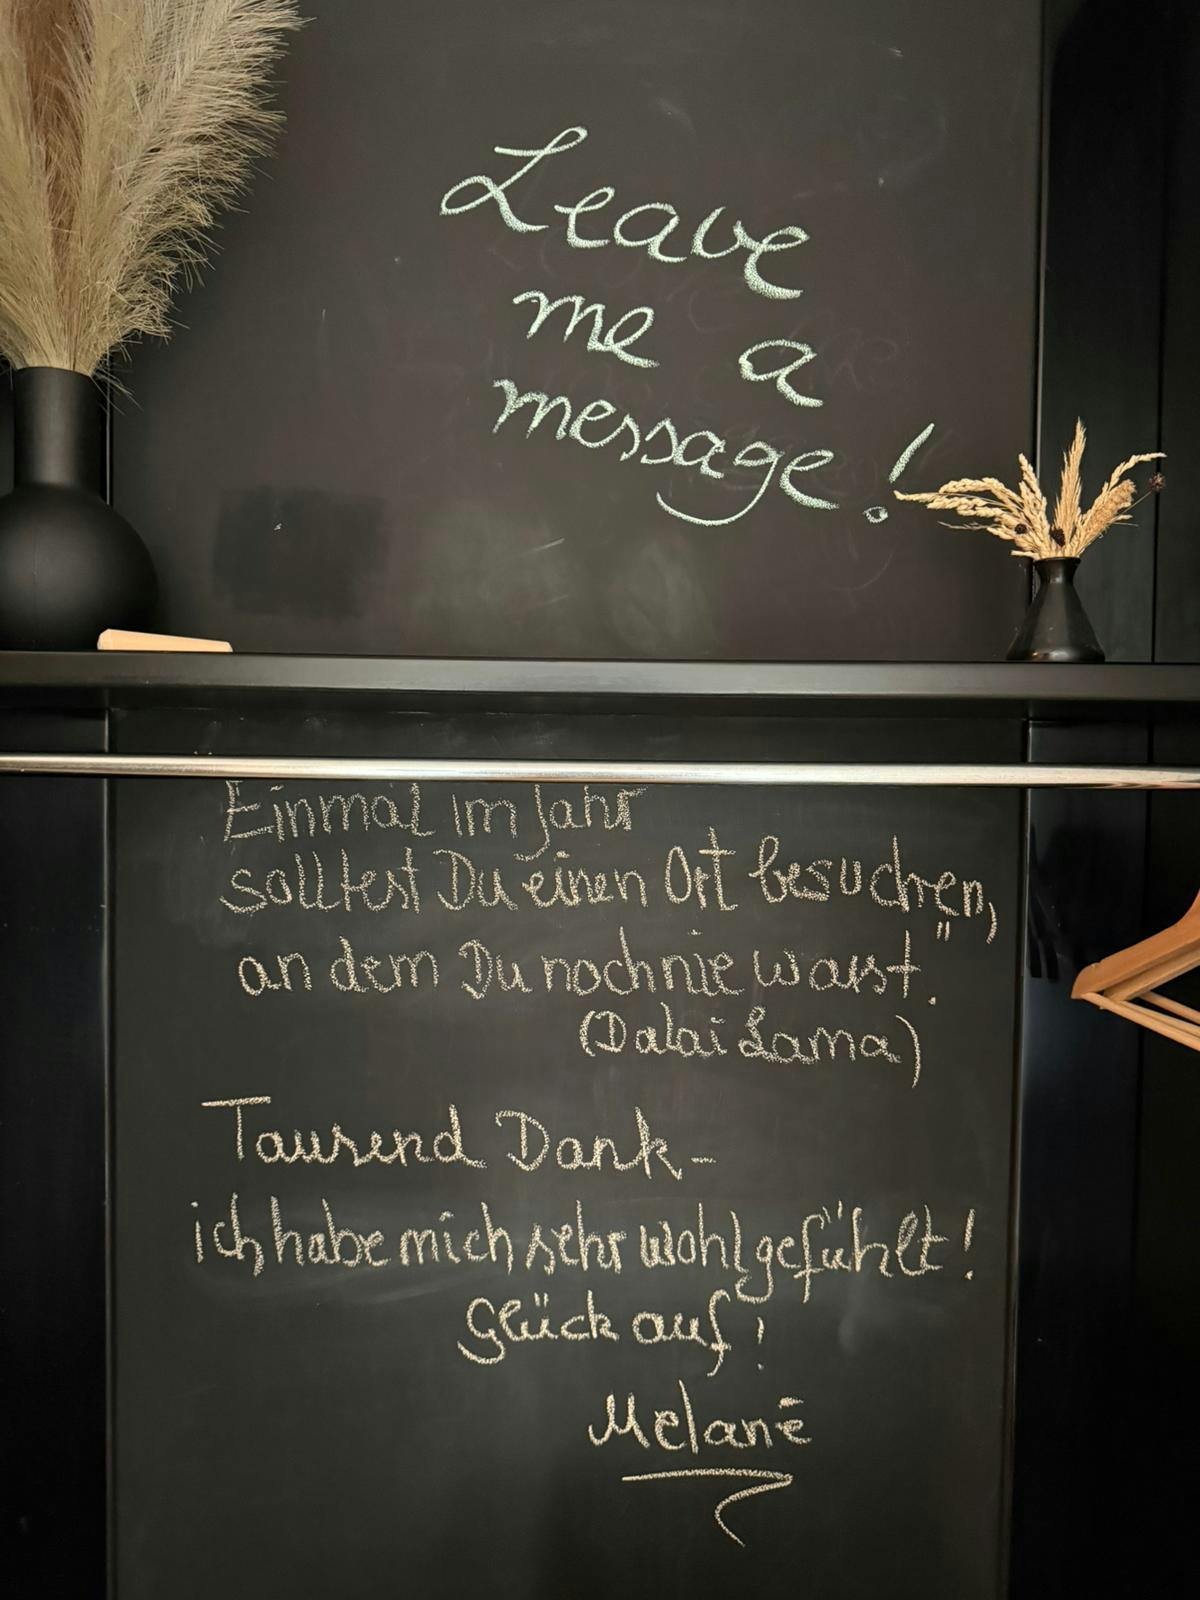 Leave
me a
message!
Einmal im Jahr
solltest Du einen Ort besuchen,
an dem Du noch nie warst."
(Dalai Lama)
Tausend Dank-
ich habe mich sehr wohlgefühlt!
Glück auf!
Melanē